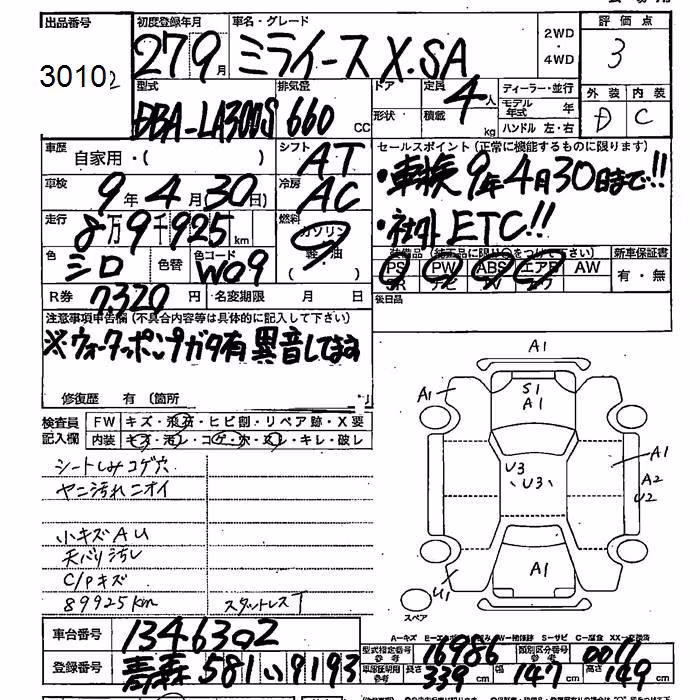 出品番号 初度登録年月 車名・グレード 2WD・4WD 評価点
30102 27 9月 ミライース X.SA 3
型式 排気量 ドア 定員 ディーラー・並行 外装 内装
DBA-LA300S 660cc 形状 積載 4人 kg モデル年式 年 ハンドル 左・右 D C
車歴 自家用・( ) シフト AT セールスポイント(正常に機能するものに限ります)
車検 9年4月(30日) 冷房 AC ・車検9年4月30日まで!!
走行 8万9千925km 燃料 ガソリン 軽・油 ・社外ETC!!
色 シロ 色替 色コード W09 装備品(純正品に限り○をつけて下さい) 新車保証書
PS PW ABS エアB AW 有・無
R券 7,320円 名変期限 月 日 後日品
注意事項申告欄(不具合内容等は具体的に記入して下さい)
※ウォーターポンプガタ有 異音してます
修復歴 有(箇所
検査員記入欄 FW キズ・飛石・ヒビ割・リペア跡・X要
内装 キズ・汚レ・コゲ・穴・スレ・キレ・破レ
シートしみコゲ穴
ヤニ汚れニオイ
小キズAU
天バリ汚レ
C/Pキズ
89925km スタットレスT
A1
A1 S1 A1
U3 U3 A1 A2 U2
U1 A1
スペア
車台番号 1346302
型式指定番号 参考 16986 類別区分番号 参考 0011
登録番号 青森 581 い 9193
長さ 339cm 幅 147cm 高さ 149cm